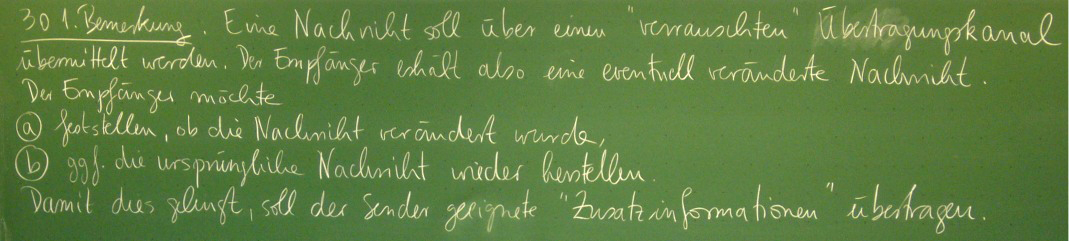 30 1. Bemerkung. Eine Nachricht soll über einen "verrauschten" Übertragungskanal
übermittelt werden. Der Empfänger erhält also eine eventuell veränderte Nachricht.
Der Empfänger möchte
(a) feststellen, ob die Nachricht verändert wurde,
(b) ggf. die ursprüngliche Nachricht wieder herstellen.
Damit dies gelingt, soll der Sender geeignete "Zusatzinformationen" übertragen.